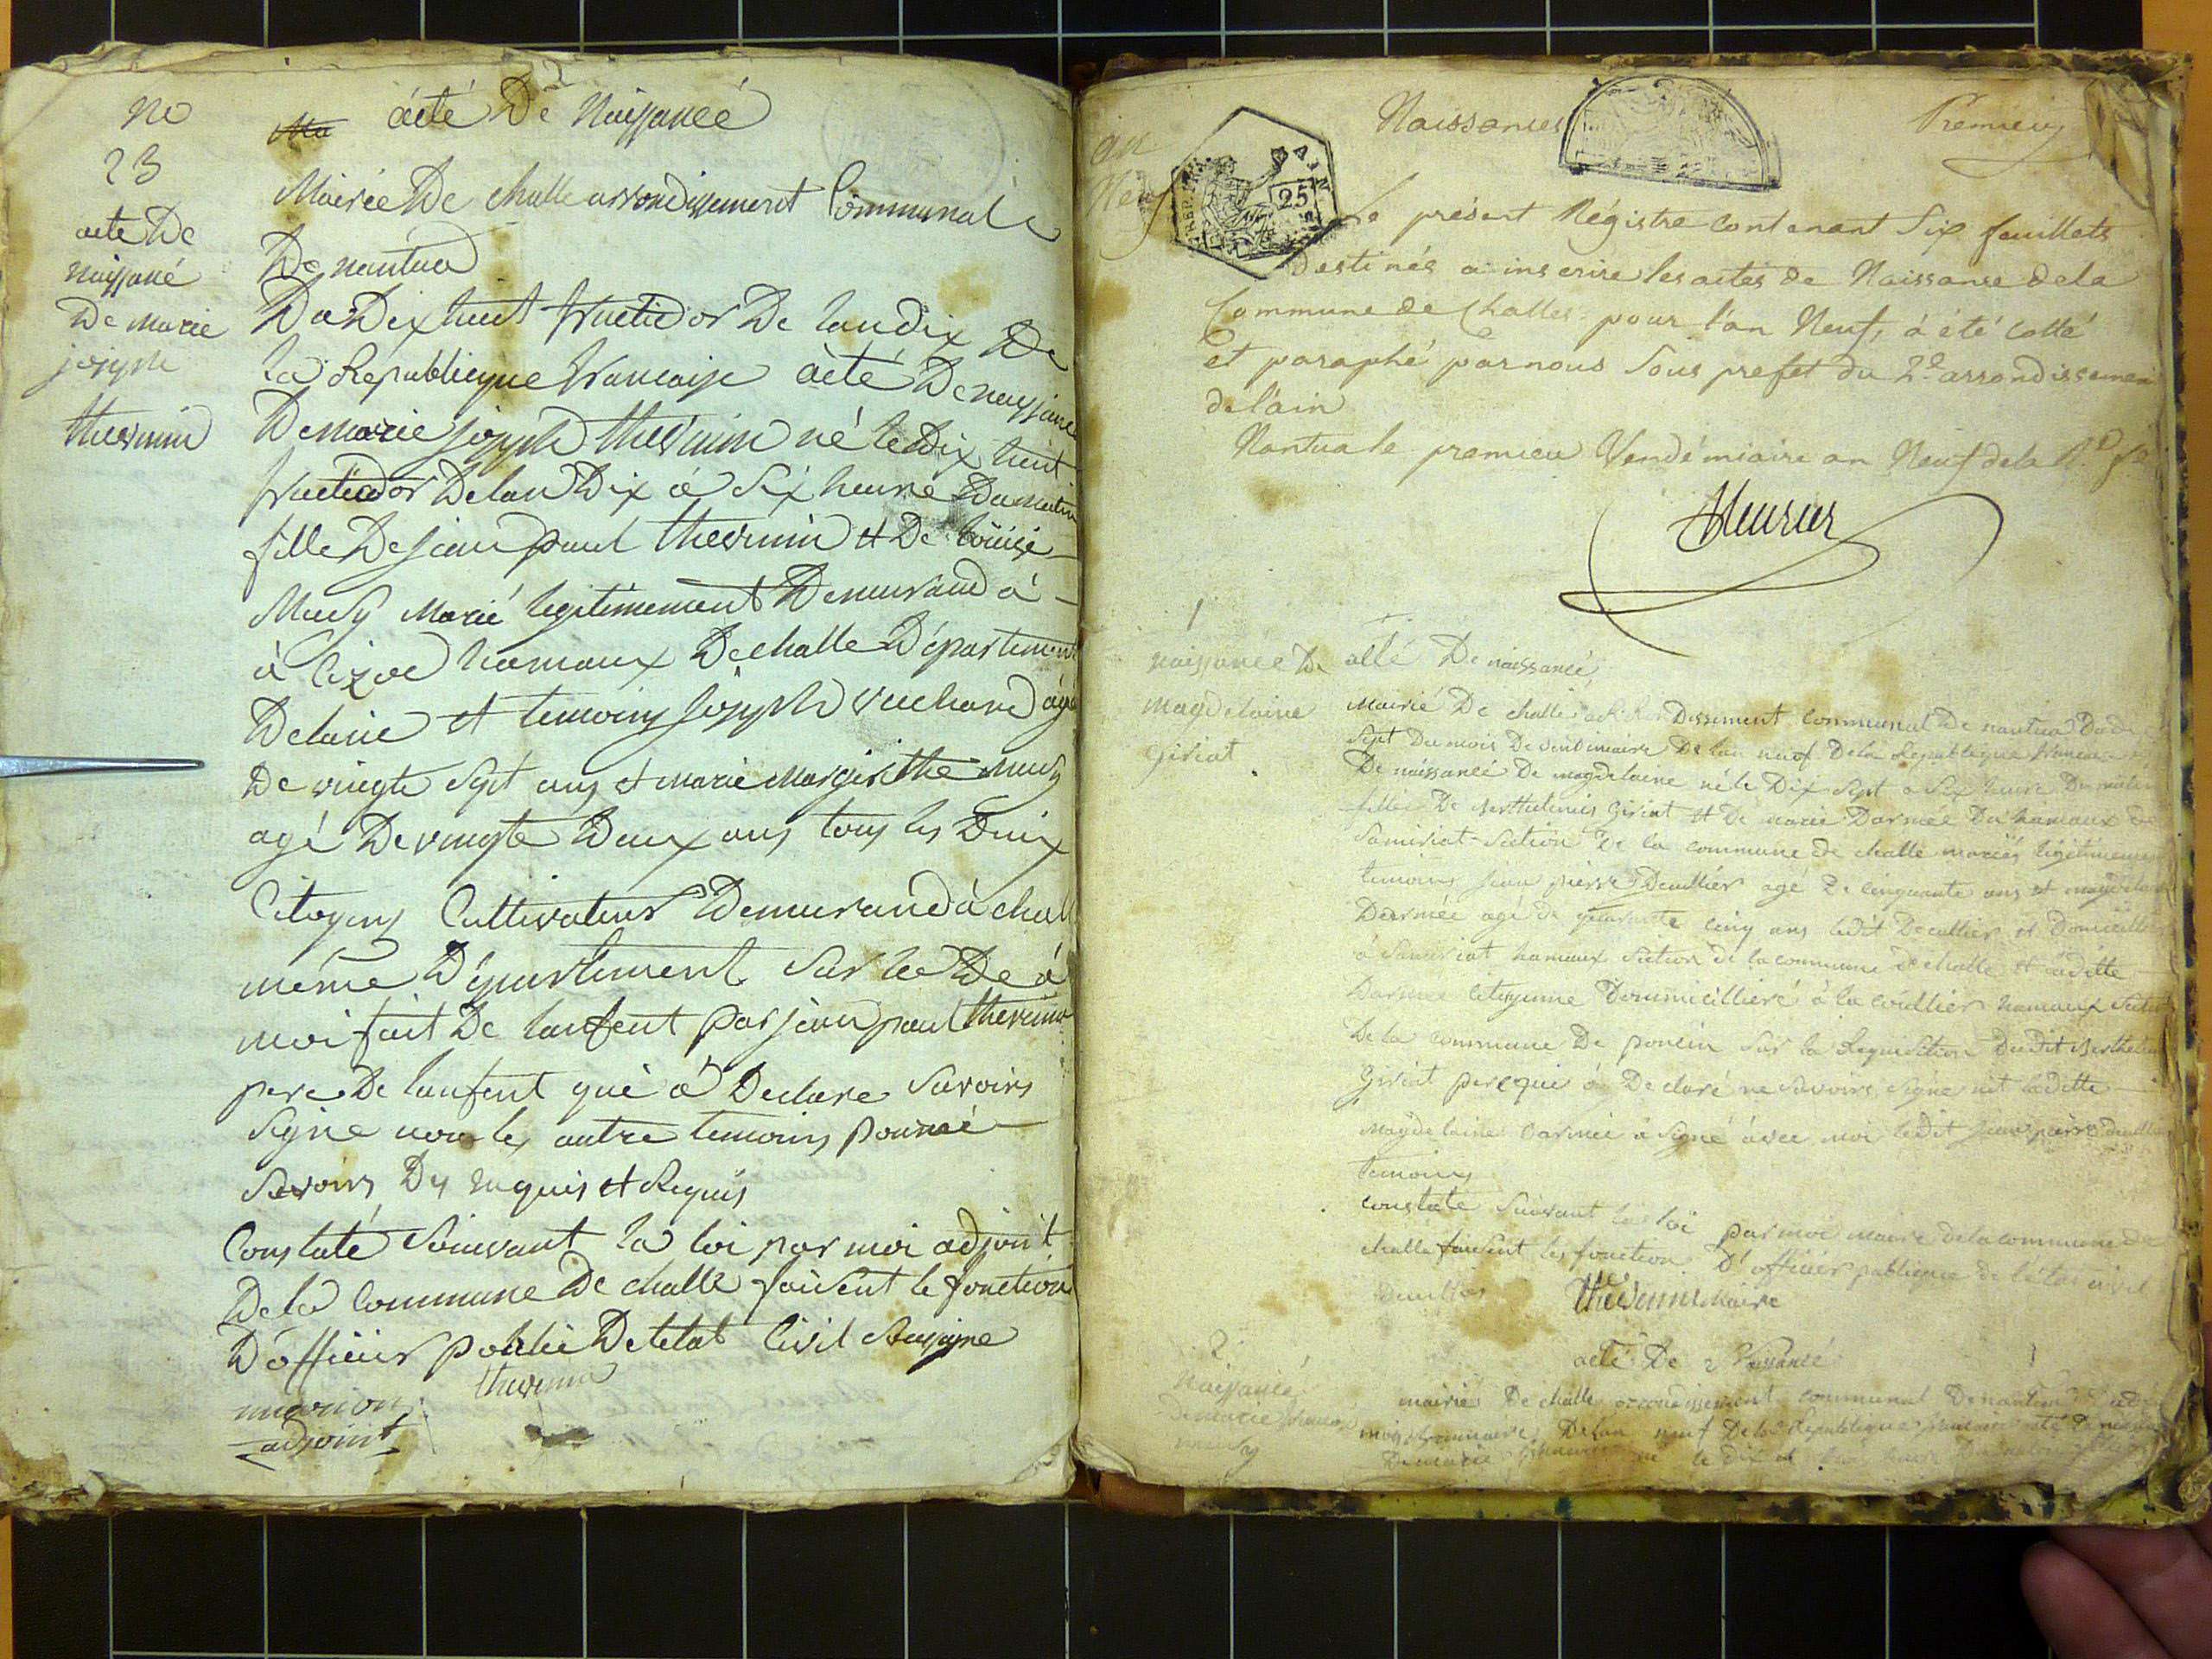 no
23
acte De
naissancé
De marie
joseph
thevenin
acté De Naissancé
Mairée De challe arrondissement Communal
De nantua
Du Dix huit fructidor De landix De
la République francaise acté De naissance
De marie joseph thevenin né le Dix huit
fructidor De lan Dix à Six heure Du matin
fille De jean paul thevenin et De louise
Musy Marié legitimement Demurand à
à Cizod hamaux De challe Département
De lain et temoins joseph vuchard agé
De vingte Sept ans et marie Margerithe musy
agé De vingte Deux ans tous les Duix
Citoyens Cultivateur Demurand à chall
méme Département Sur le De à
moi fait De lanfent par jean paul thevenin
pere De lanfent qui à Declare Savoirs
Signe non les autre temoins pour né
Savoirs De enquis et Requis
Constaté Suivant la loi par moi adjoint
De la Commune De challe faisent le fonction
D'officier public De letat Civil Soussigne
thevenin
adjoint
an
Neuf
Naissances
Premier
REP. FRA.
25
AIN
Le présent Régistre contenant Six feuillets
Destinés a inscrire les actes de Naissance de la
Commune de Challes pour l'an Neuf, à été cotté
et paraphé par nous Sous prefet du 2e arrondissement
de l'ain
Nantua le premier Vendémiaire an Neuf de la Re fe
1
naissance De
magdelaine
giriat
acté De naissancé
Mairié De challe arrondissement communal De nantua Du dix
Sept Du mois De vendimiaire De lan neuf De la Republique
De naissancé De magdelaine né le Dix Sept a Six heure Du matin
fille De Berthelemis giriat et De marie Darmée Du hamaux de
Samiriat Section De la commune de challe mariés légitimement
temoins jean pierre Decullier agé De cinquante ans et magdelaine
Darmée agé de quarante cinq ans ledit Decullier et Domicillié
à Samiriat hamaux Section De la commune De challe et ladite
Darmée Citoyenne Dommicillieré à la coullier hamaux Section
De la commune De poncin Sur la Requisition Dudit Berthelemi
Giriat pere qui à Declaré ne Savoirs Signé nit ladette
Magdelaine Darmée à Signé avec moi ledit jean pierre Decullier
temoins
constate Suivant la loi par moi maire de la commune de
challe faisent les fonction D'officier publique de l'état civil
thevenin Maire
2
Naissancé
De marie
acté De Naissancé
mairié De challe arrondissement communal De nantua
De lan neuf De la Republique
De marie